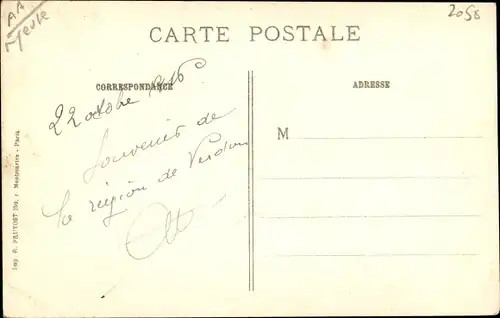 AA
Meuse
2058
CARTE POSTALE
CORRESPONDANCE
ADRESSE
22 octobre 1916
Souvenir de
la région de Verdun
M
Imp. P. PRUVOST 209, r. Montmartre - Paris